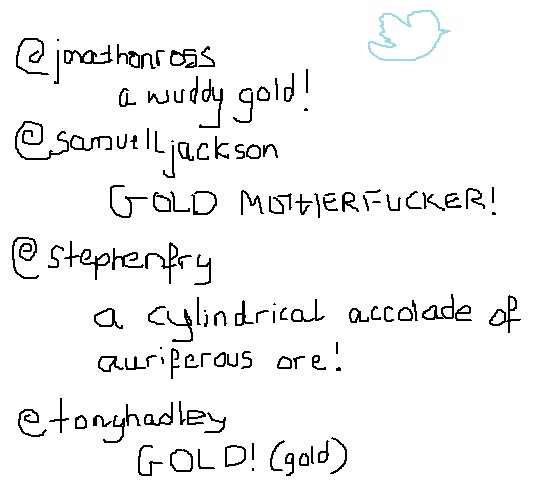 @jonathanross
a wuddy gold!
@samuelLjackson
GOLD MOTHERFUCKER!
@stephenfry
a cylindrical accolade of
auriferous ore!
@tonyhadley
GOLD! (gold)